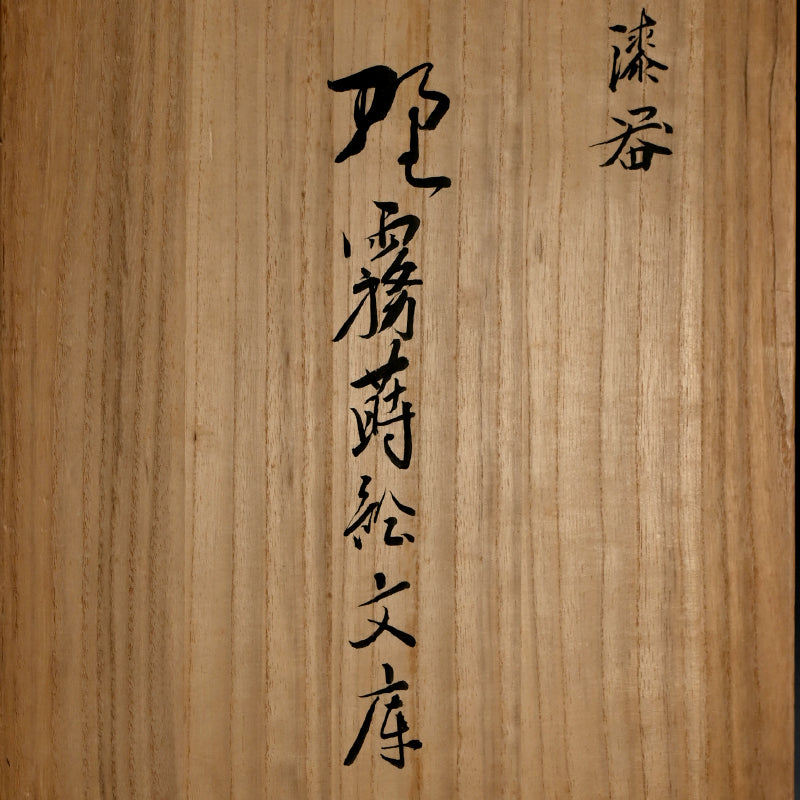 漆器
野霧蒔絵文庫